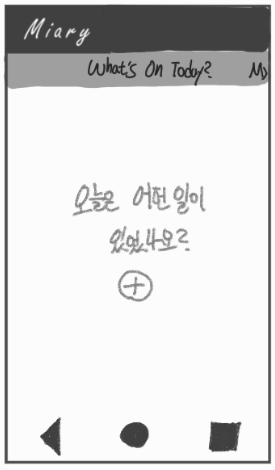 Miary
What's On Today? My
오늘은 어떤 일이
있었나요?